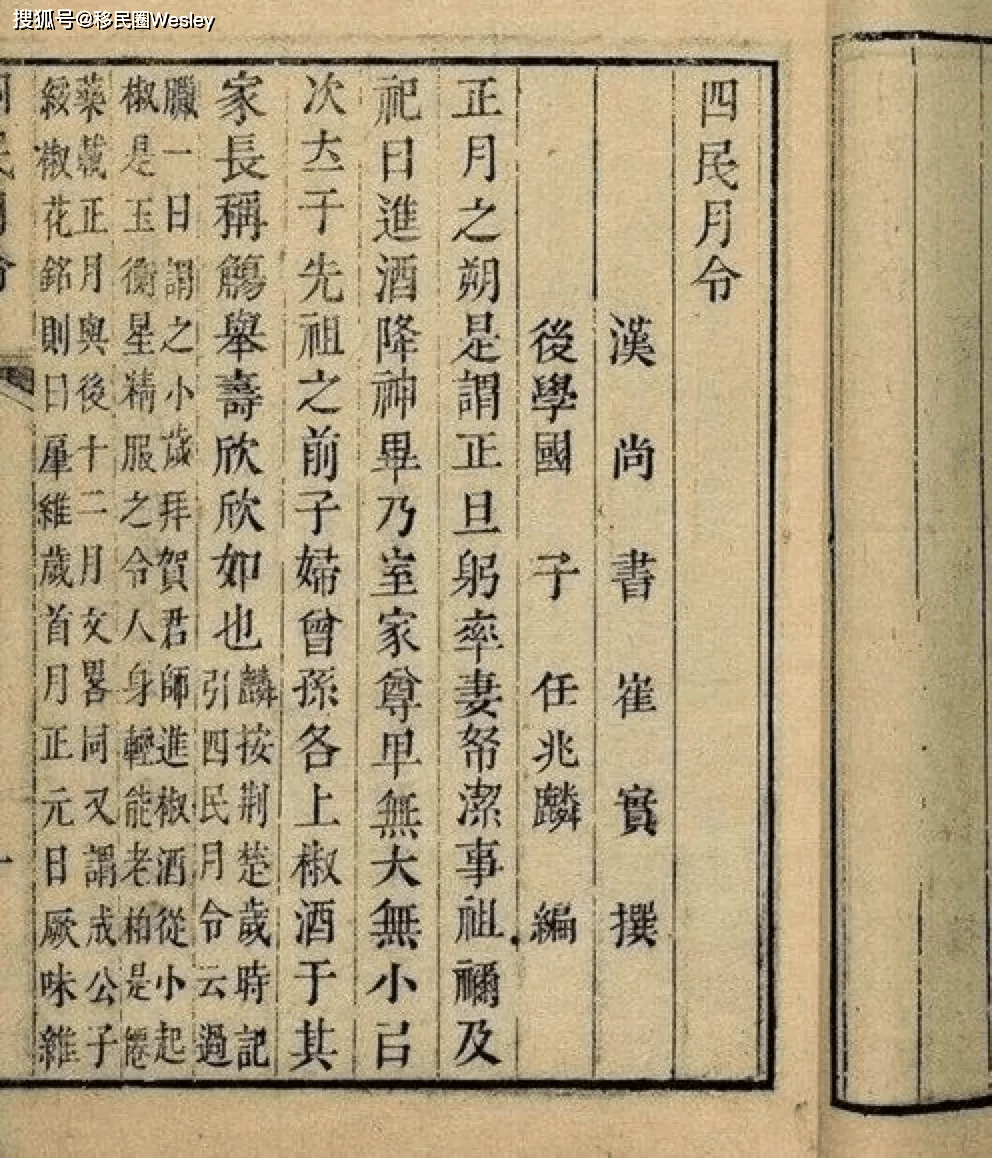 搜狐号@移民圈Wesley
四民月令
漢尚書崔實撰
後學國子任兆麟編
正月之朔是謂正旦躬率妻帑潔事祖禰及
祀日進酒降神畢乃室家尊卑無大無小㠯
次于先祖之前子婦曾孫各上椒酒于其
家長稱觴舉壽欣欣如也
麟按荆楚歲時記
引四民月令云過
臘一日謂之小歲拜賀君師進椒酒從小起
椒是玉衡星精服之令人身輕能老柏是僊
藥載正月與後十二月文畧同又謂成公子
綏椒花銘則曰肇維歲首月正元日厥味維